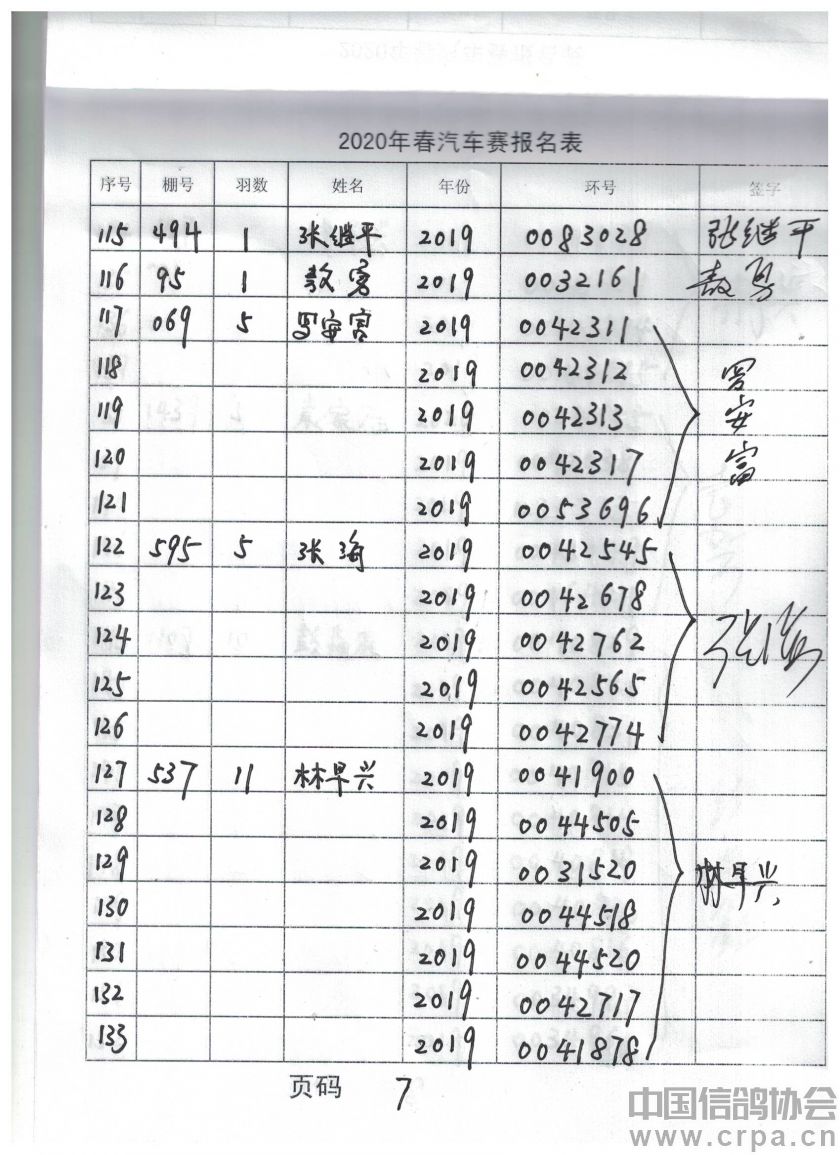 2020年春汽车赛报名表
序号 棚号 羽数 姓名 年份 环号 签字
115 494 1 张继平 2019 0083028 张继平
116 95 1 敖勇 2019 0032161 敖勇
117 069 5 罗安富 2019 0042311
118 2019 0042312 罗
119 2019 0042313 安
120 2019 0042317 富
121 2019 0053696
122 595 5 张海 2019 0042545
123 2019 0042678
124 2019 0042762 张海
125 2019 0042565
126 2019 0042774
127 537 11 林早兴 2019 0041900
128 2019 0044505
129 2019 0031520 林早兴
130 2019 0044518
131 2019 0044520
132 2019 0042717
133 2019 0041878
页码 7
中国信鸽协会
www.crpa.cn